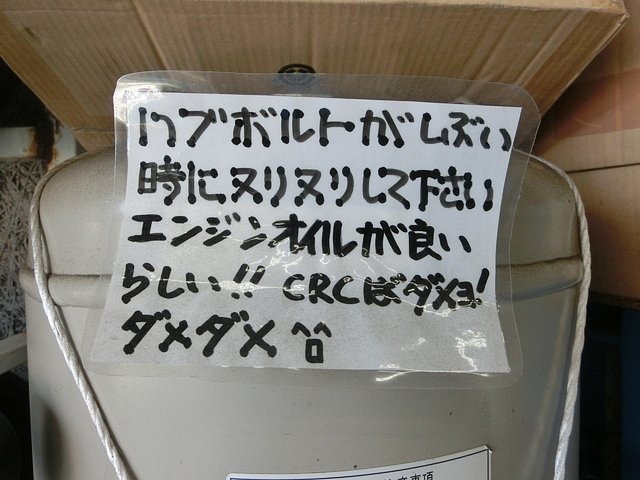 ハブボルトがムズい
時にヌリヌリして下さい
エンジンオイルが良い
らしい!! CRCはダメョ!
ダメダメ ^ロ^
事項